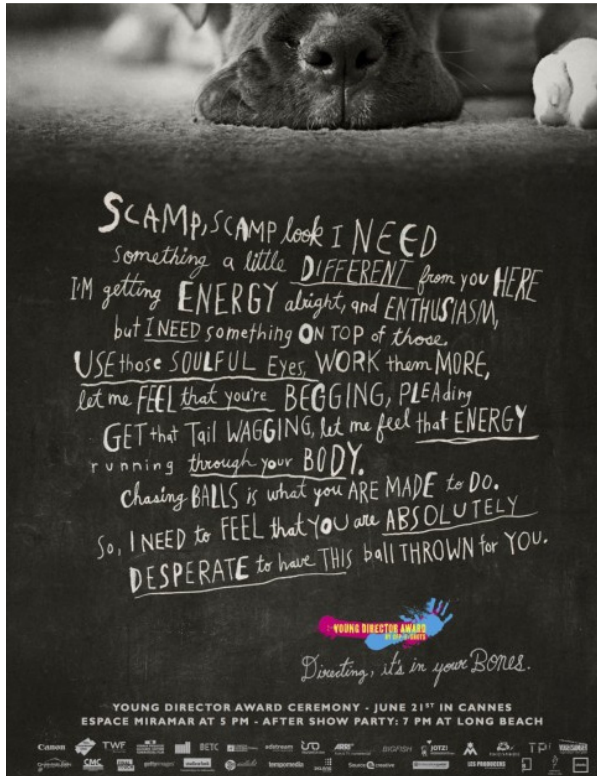 SCAMP, SCAMP look I NEED
something a little DIFFERENT from you HERE
I'M getting ENERGY alright, and ENTHUSIASM,
but I NEED something ON TOP of those.
USE those SOULFUL Eyes, WORK them MORE,
let me FEEL that you're BEGGING, PLEAding
GET that Tail WAGGING, let me feel that ENERGY
running through your BODY.
Chasing BALLS is what you ARE MADE to DO.
So, I NEED to FEEL that YOU are ABSOLUTELY
DESPERATE to have THIS ball THROWN for YOU.
YOUNG DIRECTOR AWARD
Directing, it's in your Bones.
YOUNG DIRECTOR AWARD CEREMONY - JUNE 21ST IN CANNES
ESPACE MIRAMAR AT 5 PM - AFTER SHOW PARTY: 7 PM AT LONG BEACH
Canon TWF BETC adstream ARRI BIGFISH JOTZ! TPi
CMC gettyimages tempomedia Source creative LES PRODUCERS